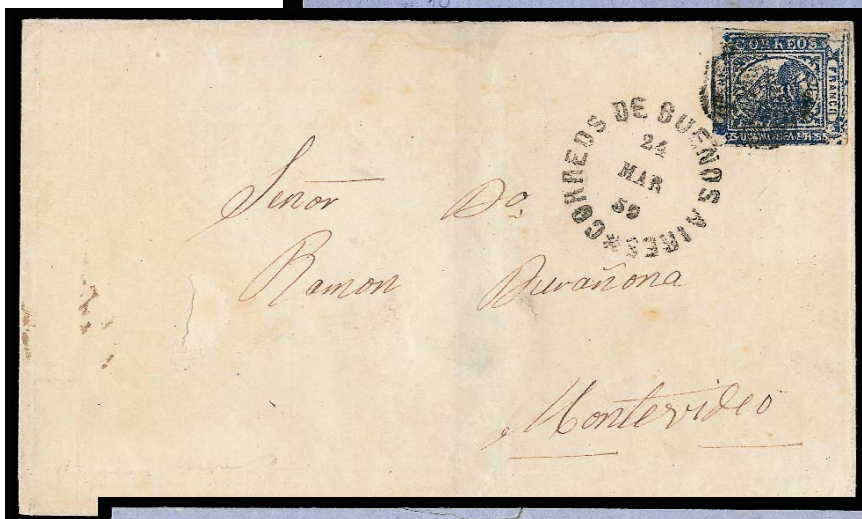 CORREOS
FRANCO
CORREOS DE BUENOS AIRES
24
MAR
59
Señor Dn.
Ramon Durañona
Montevideo